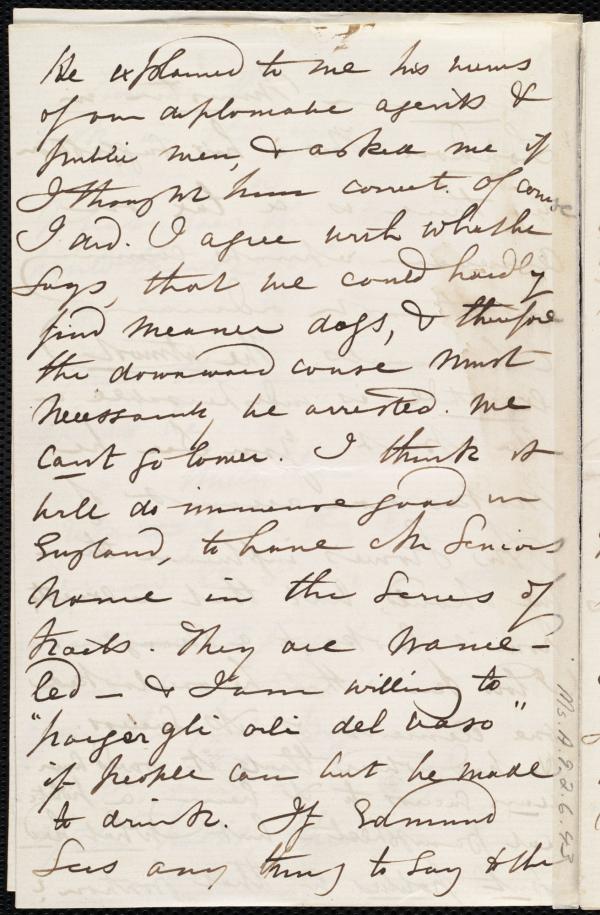 He explained to me his views
of our diplomatic agents &
public men, & asked me if
I thought him correct. Of course
I did. I agree with what he
says, that we could hardly
find meaner dogs, & therefore
the downward course must
necessarily be arrested. We
can't go lower. I think it
will do immense good in
England, to have Mr Seniors
name in the series of
tracts. They are
led — & I am willing to
"porger gli orli del vaso"
if people can but be made
to drink. If Edmund
sees any thing to say to the
Ms. A.9.2.6.43